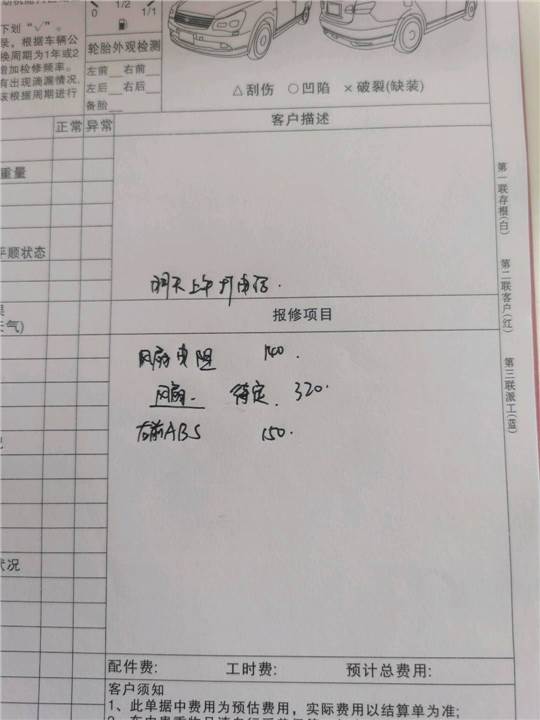 0 1/2 1/1
下划“√”。
轮胎外观检测
录，根据车辆公
换周期为1年或2
增加检修频率。
有出现滴漏情况
该根据周期进行
左前 右前
左后 右后
备胎
△刮伤 ○凹陷 ×破裂(缺装)
正常 异常
客户描述
重量
平顺状态
天气)
第一联存根(白)
第二联客户(红)
第三联派工(蓝)
明天上午打电话.
报修项目
风扇电阻 140.
风扇. 待定. 320.
右前ABS 150.
状况
配件费: 工时费: 预计总费用:
客户须知
1、此单据中费用为预估费用，实际费用以结算单为准;